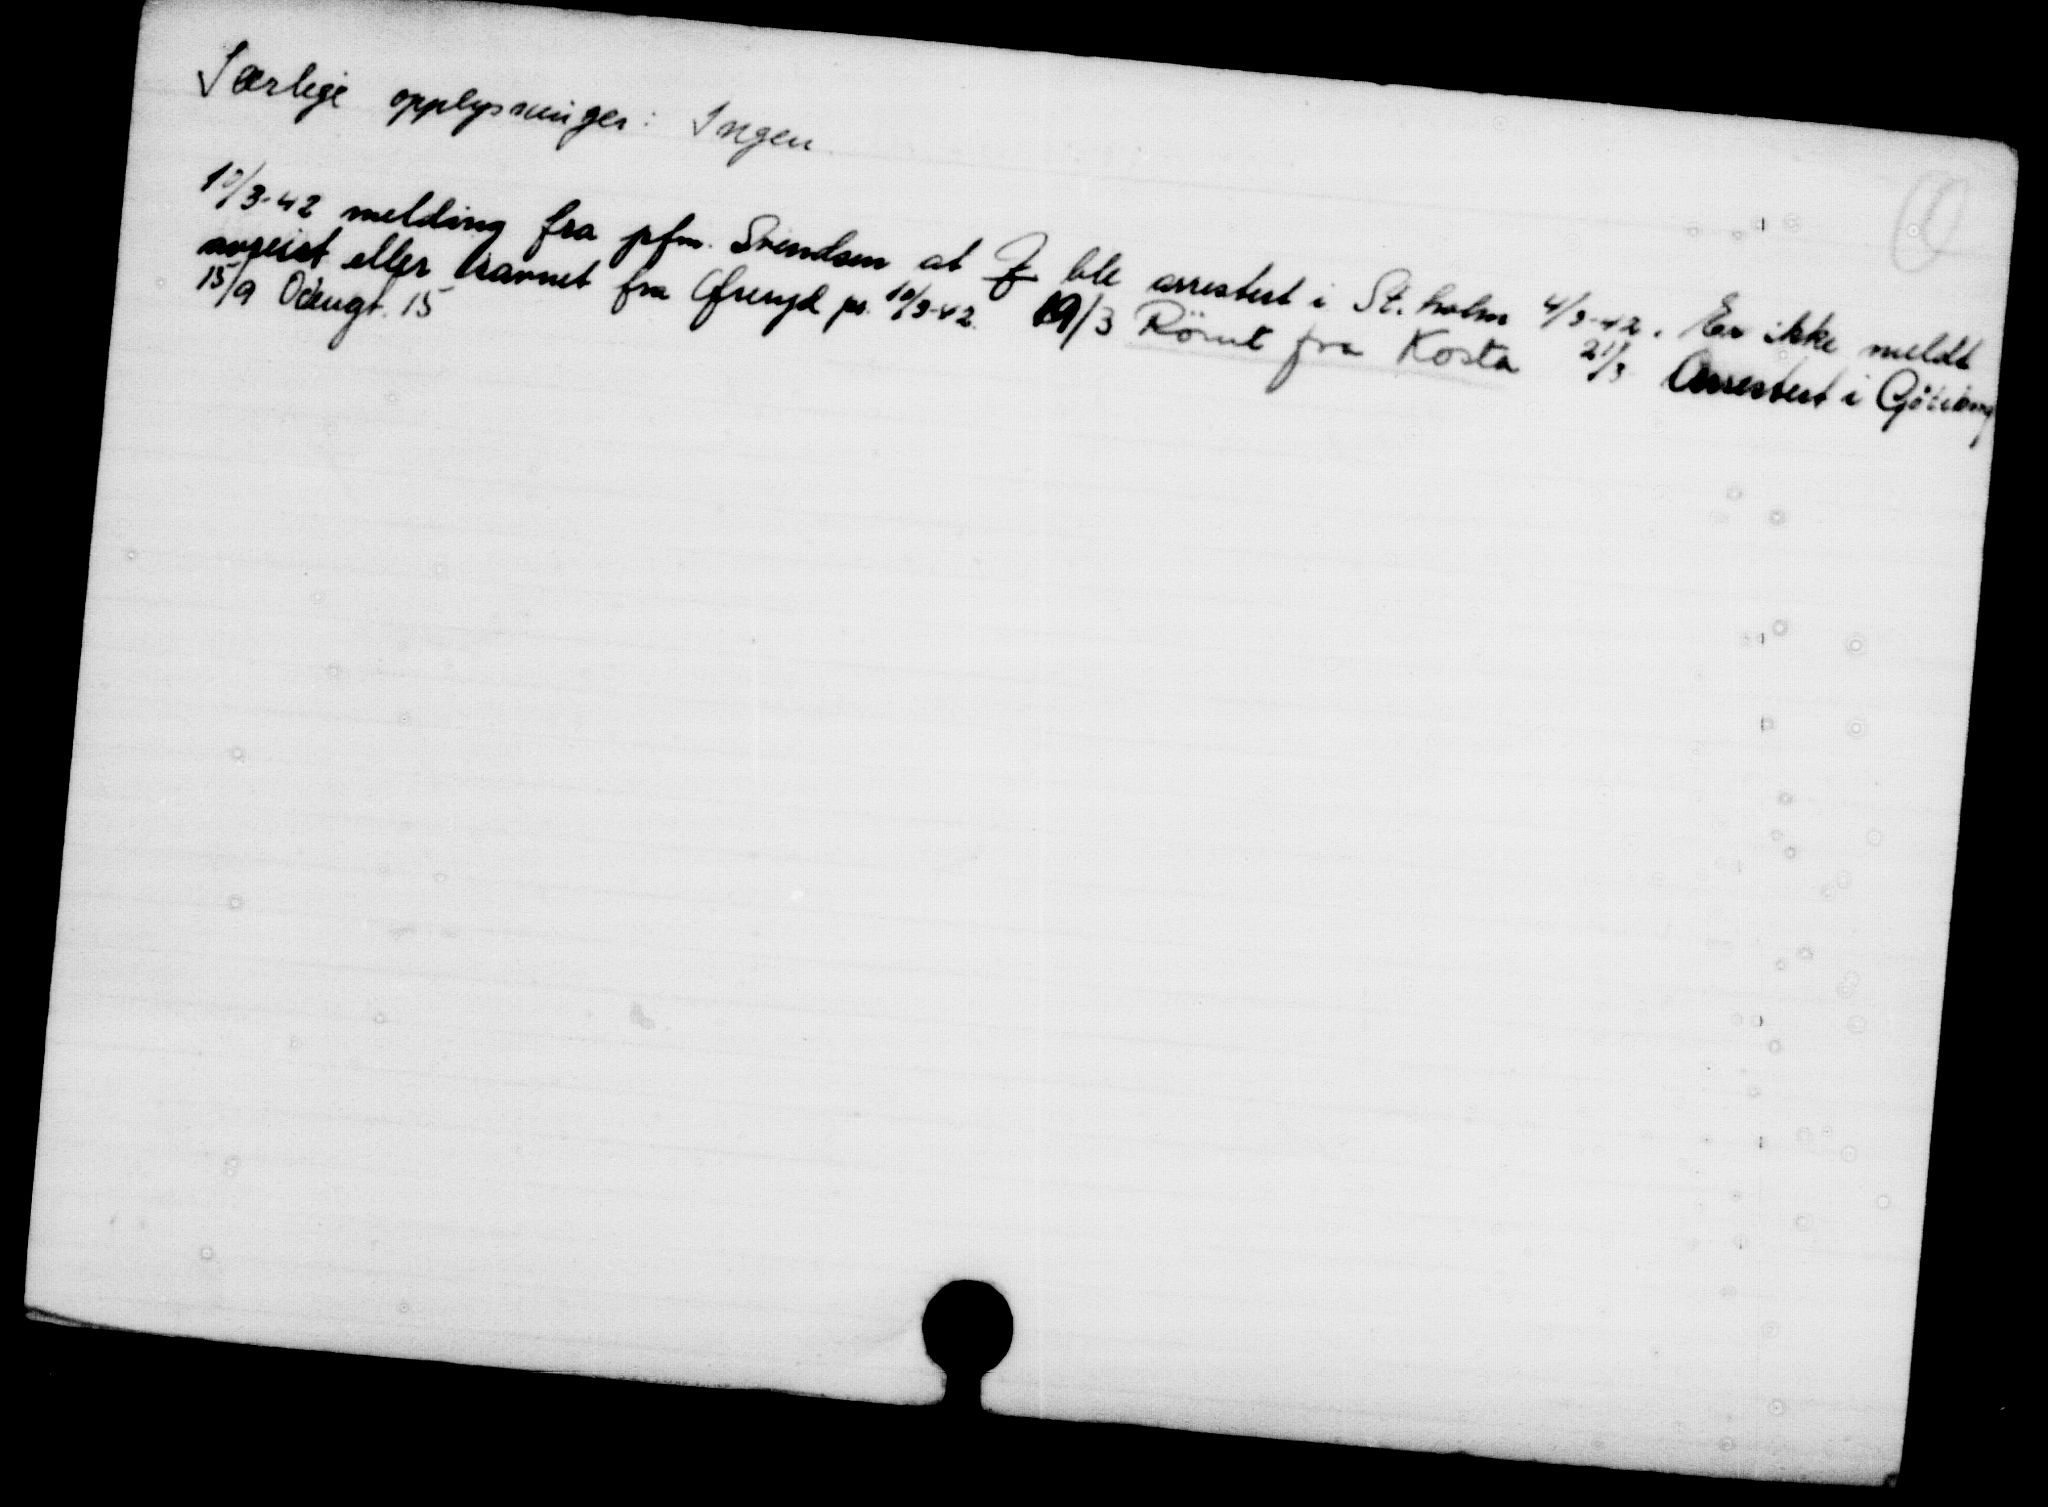 Særlige opplysninger: Ingen
10/3-42 melding fra pfm. Svendsen at F ble arrestert i St.holm 4/3-42. Er ikke meldt
avreist eller savnet fra Öreryd pr. 10/3-42. 19/3 Römt fra Kosta 21/3 Arrestert i Göteborg
15/9 Odengt. 15